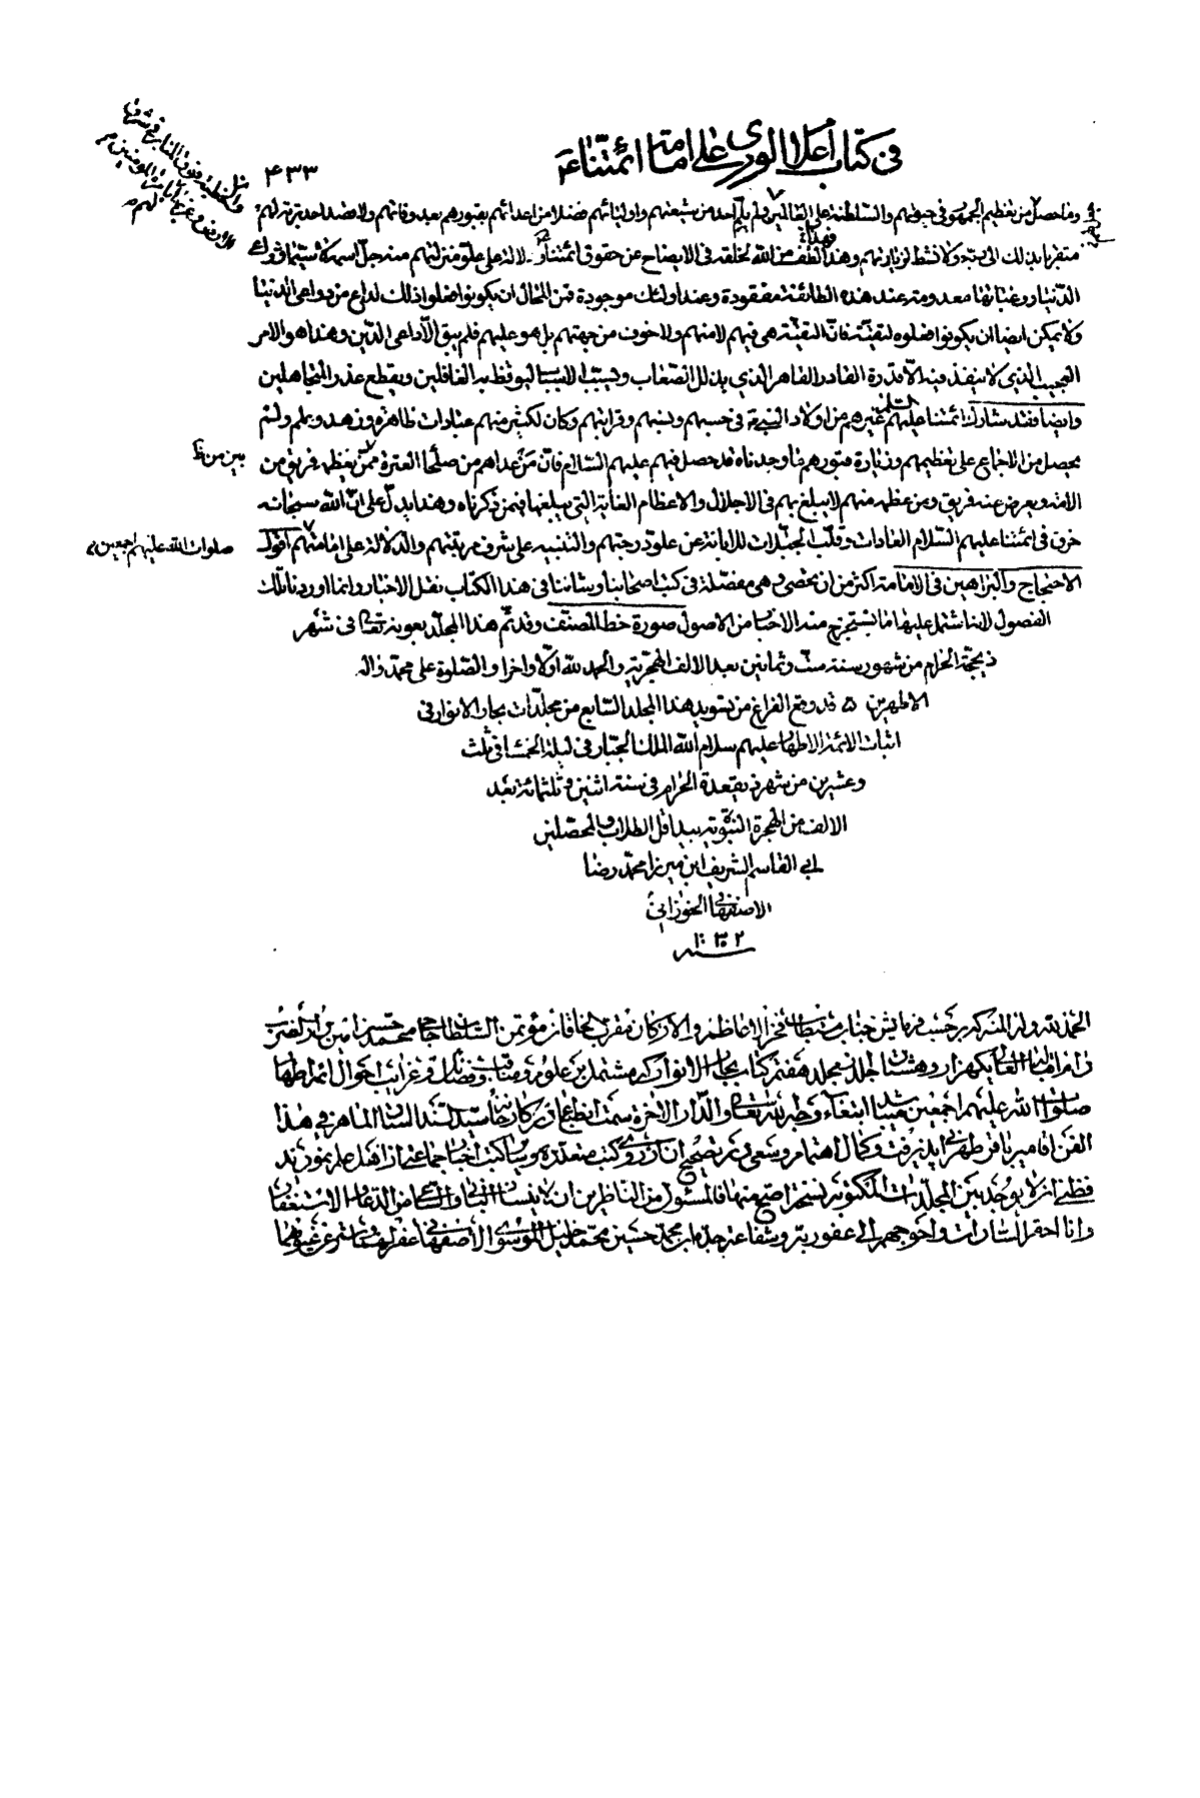 في كتاب اعلام الورى على امامة ائمتنا ع
۴۳۳
وما حصل من تعظيم الجمهور في حيوتهم والسلطنة على العالمين ولم يلم احد من شيعتهم واوليائهم فضلا من اعدائهم بقبورهم بعد وفاتهم ولا قصد احد تربة لهم
متقربا بذلك الى ربه ولا نشط لزيارتهم وهذا لطف من الله لخلقه في الايضاح عن حقوق ائمتنا ودلالة على علو منزلتهم منه جل اسمه لا سيما ودواعي
الدنيا ورغباتها معدومة عند هذه الطائفة مفقودة وعند اولئك موجودة فمن المحال ان يكونوا فعلوا ذلك لداع من دواعي الدنيا
ولا يمكن ايضا ان يكونوا فعلوه لتقية فان التقية هي فيهم لا منهم ولا خوف من جهتهم بل هو عليهم فلم يبق الا داعي الدين وهذا هو الامر
العجيب الذي لا ينفذ فيه الا قدرة القادر القاهر الذي يذلل الصعاب ويسبب الاسباب ليوقظ به الغافلين ويقطع عذر المتجاهلين
وايضا فقد شارك ائمتنا عليهم السلام غيرهم من اولاد النبي في حسبهم ونسبهم وقرابتهم وكان لكثير منهم عبادات ظاهرة وزهد وعلم ولم
يحصل من الاجماع على تعظيمهم وزيارة قبورهم ما وجدناه قد حصل فيهم عليهم السلام فان من عداهم من صلحاء العترة ممن يعظمه فريق من
الامة ويعرض عنه فريق ومن عظمه منهم لا يبلغ بهم في الاجلال والاعظام الغاية التي يبلغها فيمن ذكرناه وهذا يدل على ان الله سبحانه
خرق في ائمتنا عليهم السلام العادات وقلب الجبلات للابانة عن علو درجتهم والتنبيه على شرف مرتبتهم والدلالة على امامتهم اقول
صلوات الله عليهم اجمعين
الاحتجاج والبراهين في الامامة اكثر من ان يحصى وهي مفصلة في كتب اصحابنا وبنائنا في هذا الكتاب نقل الاخبار وانما اوردنا تلك
الفصول لانها تشتمل عليها ما يستخرج منه الاخبار من الاصول صورة خط المصنف وقد تم هذا المجلد بعونه تعالى في شهر
ذي حجة الحرام من شهور سنة ست وثمانين بعد الالف الهجرية والحمد لله اولا واخرا والصلوة على محمد واله
الاطهرين قد وقع الفراغ من تسويد هذا المجلد السابع من مجلدات بحار الانوار في
اثبات الائمة الاطهار عليهم سلام الله الملك الجبار في ليلة الخمسا في ثلث
وعشرين من شهر ذيقعدة الحرام في سنة اثنين وثلثمائة بعد
الالف من الهجرة النبوية بيد اقل الطلاب والمحصلين
ابي القاسم الشريف ابن ميرزا محمد رضا
الاصفهاني الخوزاني
سنة ۱۳۰۲
الحمد لله وله المنة كه بر حسب فرمايش جناب مستطاب فخر الاعاظم والاركان مقرب الخاقان مؤتمن السلطان حاجي محمد حسن امين دار الضرب
دام اقباله العالي يكهزار و هشتاد جلد از مجلد هفتم كتاب بحار الانوار كه مشتمل بر علوم و مناقب و فضائل و غرائب احوال ائمه اطهار
صلوات الله عليهم اجمعين ميباشد ابتغاء وجه الله تعالى والدار الاخرة سمت انطباع
الفن اقا مير باقر طهراني پذيرفت و كمال اهتمام و سعي در تصحيح ان از روي كتب متعدده و
فظني انه لا يوجد بين المجلدات المكتوبة نسخة اصح منها فالمسئول من الناظرين ان لا ينسانا الباني والساعي من الدعاء والاستغفار
وانا احقر السادات واحوجهم الى عفو ربه وشفاعة جده ابن محمد حسين محمد خليل الموسوي الاصفهاني غفر له